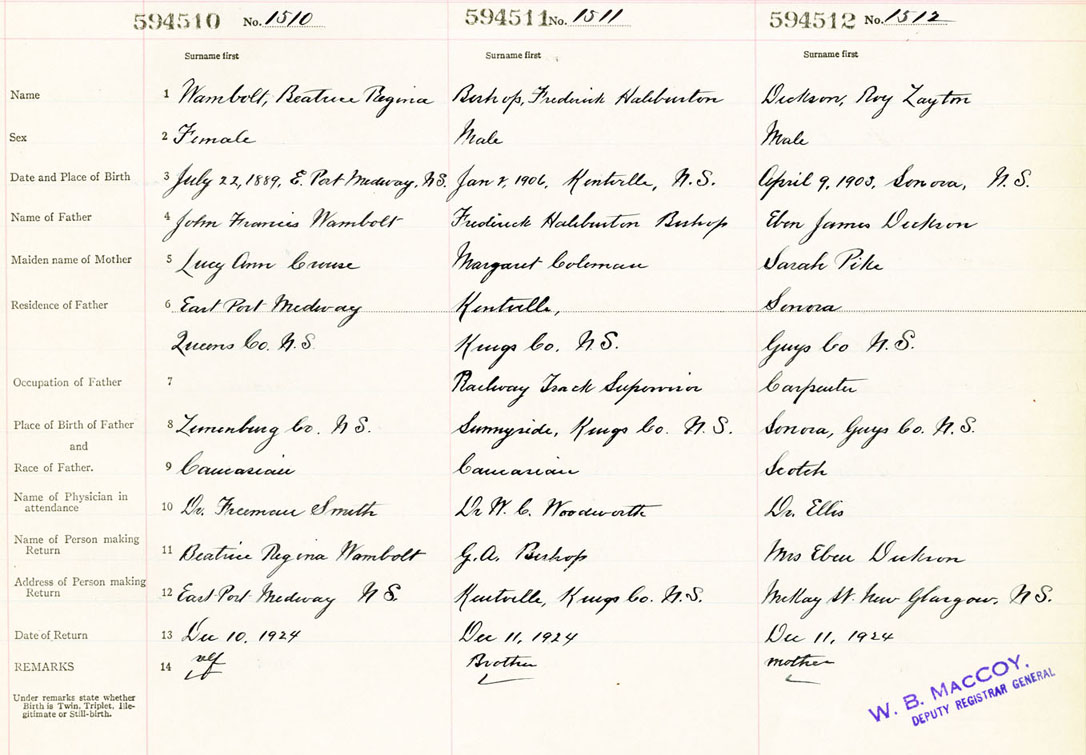 594510 No. 1510 594511 No. 1511 594512 No. 1512
Surname first Surname first Surname first
Name 1 Wambolt, Beatrice Regina Bishop, Frederick Haliburton Dickson, Roy Layton
Sex 2 Female Male Male
Date and Place of Birth 3 July 22, 1889, E. Port Medway, N.S. Jan 8, 1906, Kentville, N.S. April 9, 1903, Sonora, N.S.
Name of Father 4 John Francis Wambolt Frederick Haliburton Bishop Eben James Dickson
Maiden name of Mother 5 Lucy Ann Crouse Margaret Coleman Sarah Pike
Residence of Father 6 East Port Medway Kentville, Sonora
Queens Co. N.S. Kings Co. N.S. Guys Co N.S.
Occupation of Father 7 Railway Track Supervisor Carpenter
Place of Birth of Father 8 Lunenburg Co. N.S. Sunnyside, Kings Co. N.S. Sonora, Guys Co. N.S.
and
Race of Father. 9 Caucasian Caucasian Scotch
Name of Physician in attendance 10 Dr. Freeman Smith Dr W. C. Woodworth Dr. Ellis
Name of Person making Return 11 Beatrice Regina Wambolt G.A. Bishop Mrs Eben Dickson
Address of Person making Return 12 East Port Medway N.S. Kentville, Kings Co. N.S. McKay St. New Glasgow, N.S.
Date of Return 13 Dec 10, 1924 Dec 11, 1924 Dec 11, 1924
REMARKS 14 self Brother mother
Under remarks state whether
Birth is Twin, Triplet, Ille-
gitimate or Still-birth.
W. B. MACCOY,
DEPUTY REGISTRAR GENERAL